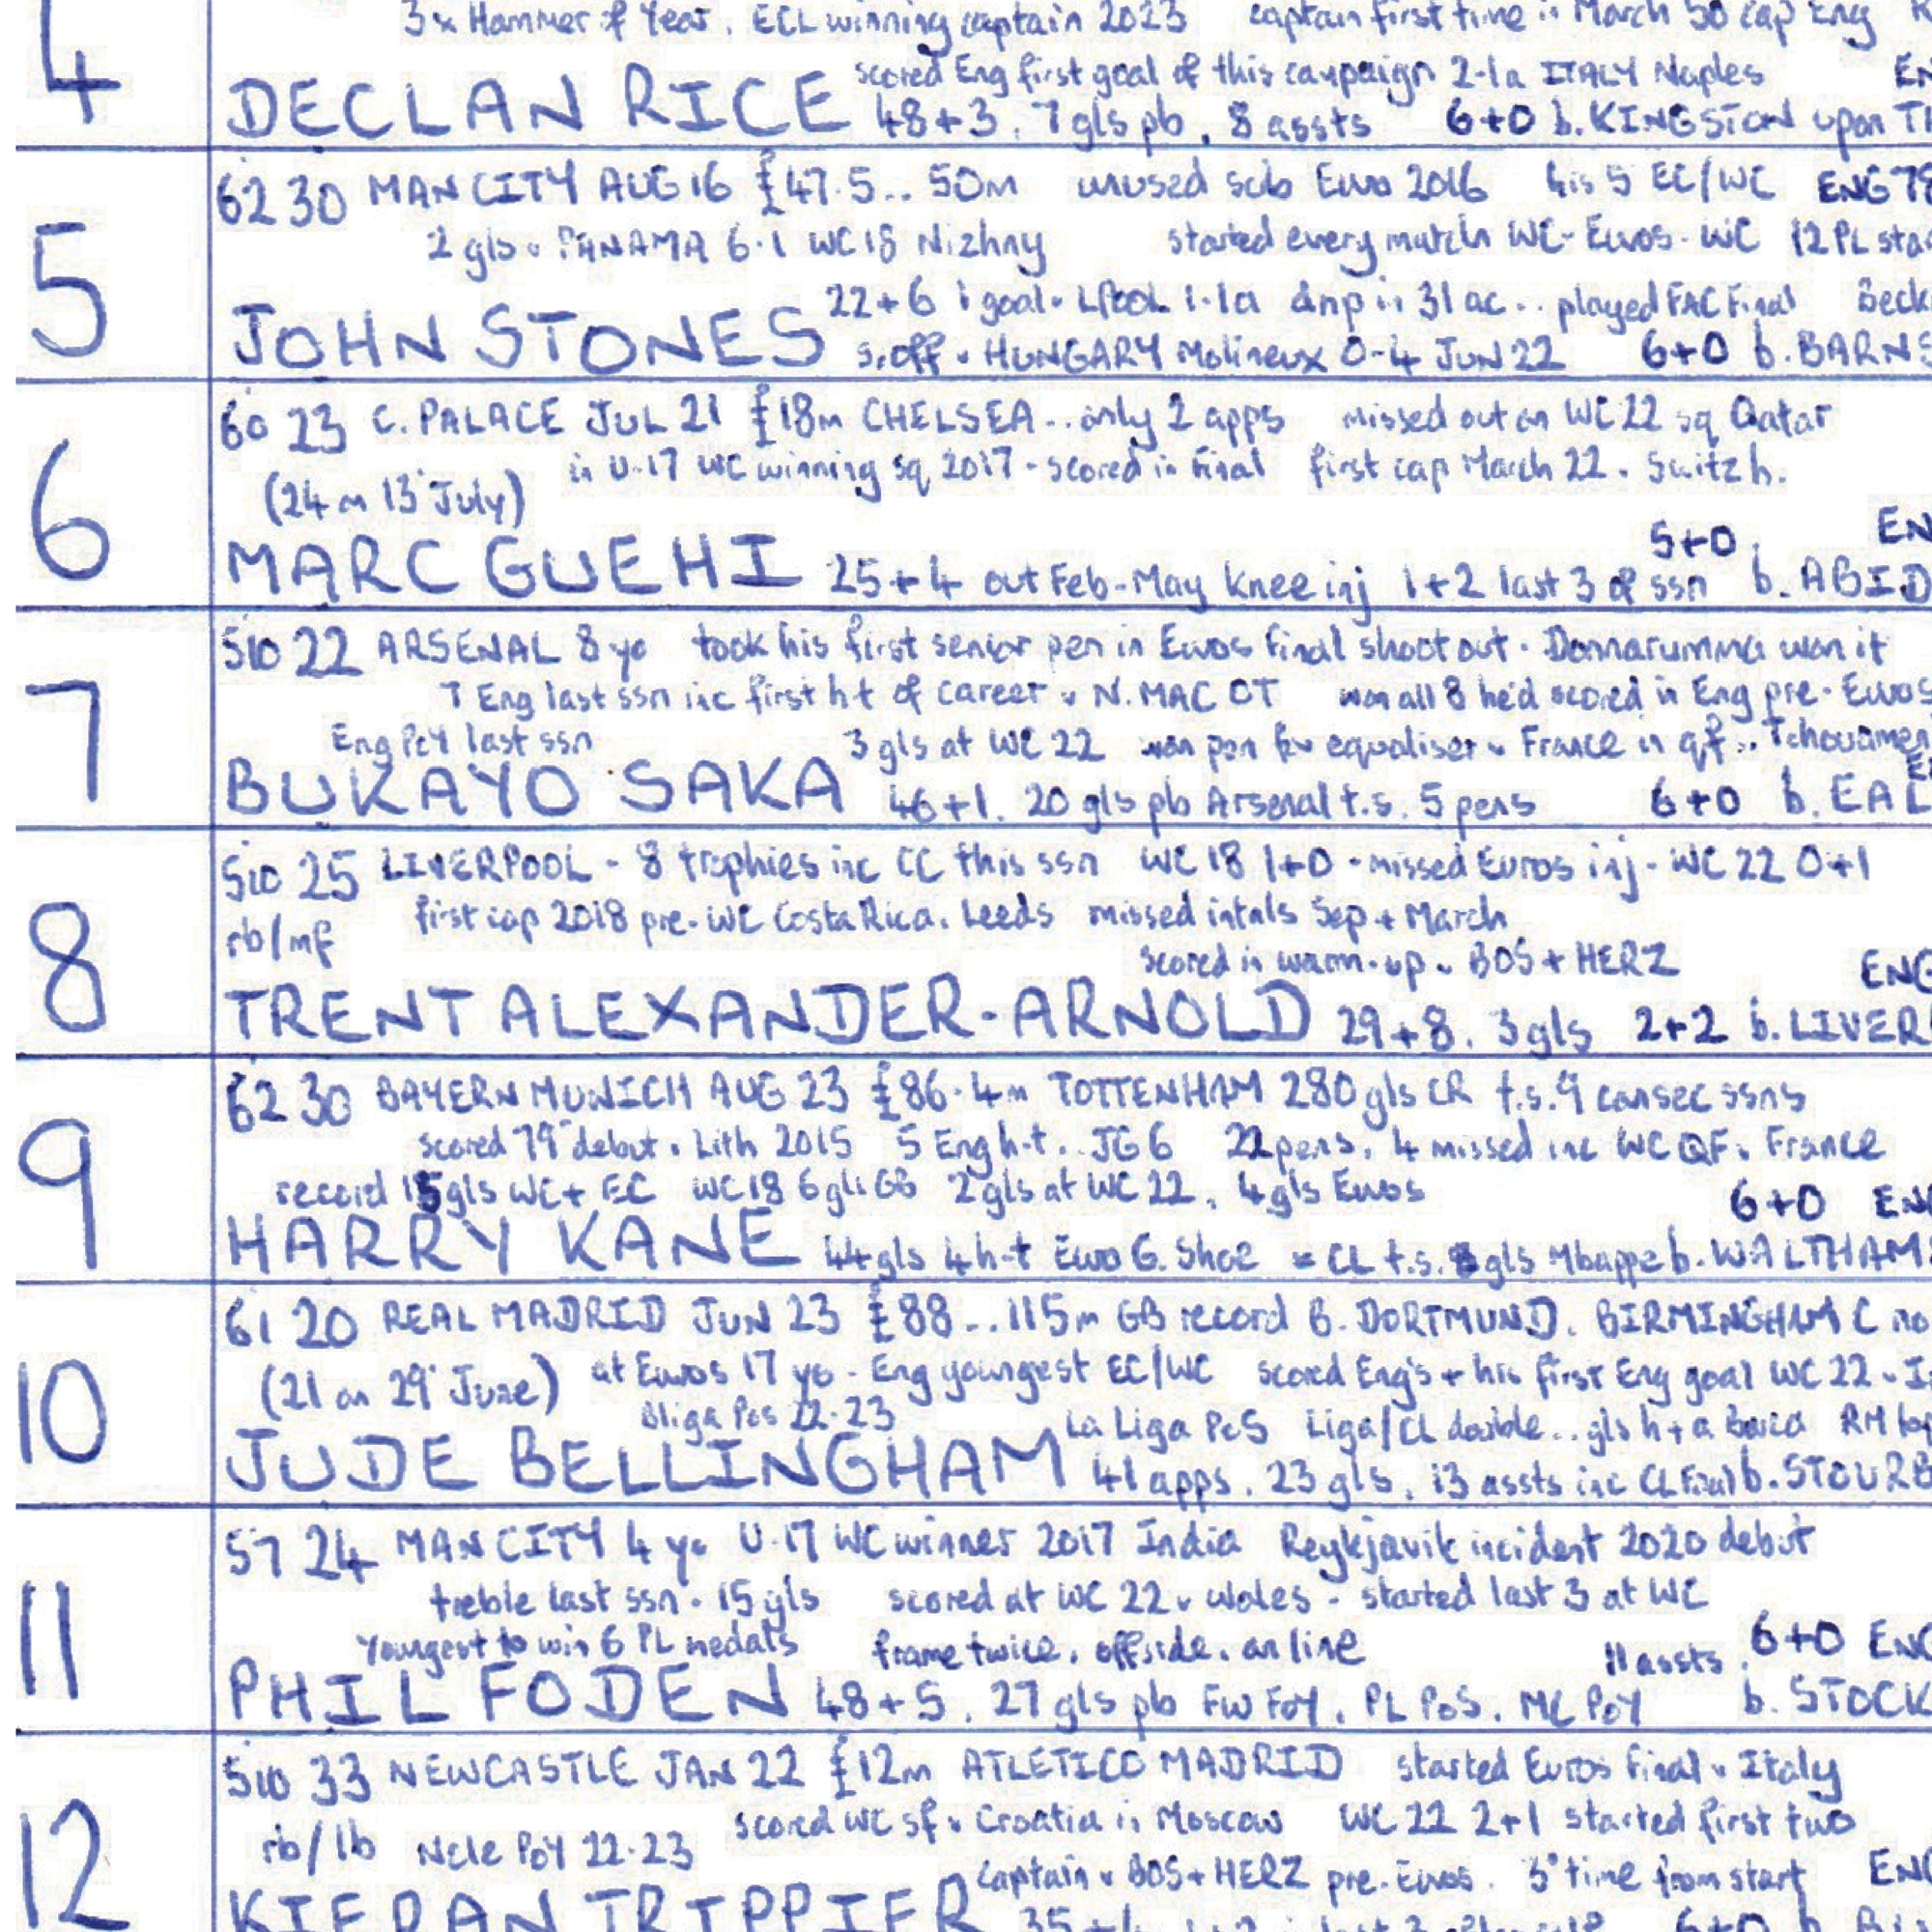 4
3x Hammer of Year. ECL winning captain 2023 captain first time in March 50 cap Eng
scored Eng first goal of this campaign 2-1a ITALY Naples EN
DECLAN RICE 48+3. 7gls pb. 8 assts 6+0 b. KINGSTON upon T
5
62 30 MAN CITY AUG 16 £47.5.. 50m unused sub Euro 2016 his 5 EC/WC ENG 7
2 gls v PANAMA 6-1 WC18 Nizhny started every match WC-Euros-WC 12 PL sta
22+6 1 goal. LPOOL 1-1a dnp in 31 ac.. played FAC Final Beck
JOHN STONES s.off v HUNGARY Molineux 0-4 JUN 22 6+0 b. BARNS
6
60 23 C. PALACE JUL 21 £18m CHELSEA.. only 2 apps missed out on WC22 sq Qatar
in U-17 WC winning sq 2017 - scored in Final first cap March 22. Switz h.
(24 on 13 July)
5+0 EN
MARC GUEHI 25+4 out Feb-May knee inj 1+2 last 3 of ssn b. ABID
7
510 22 ARSENAL 8 yo took his first senior pen in Euros Final shoot out. Donnarumma won it
7 Eng last ssn inc first h-t of career v N. MAC OT won all 8 he'd scored in Eng pre-Euros
Eng PoY last ssn 3 gls at WC 22 won pen for equaliser v France in qf.. Tchouamen
BUKAYO SAKA 46+1. 20 gls pb Arsenal t.s. 5 pens 6+0 b. EAL
8
510 25 LIVERPOOL - 8 trophies inc CC this ssn WC 18 1+0 - missed Euros inj - WC 22 0+1
rb/mf first cap 2018 pre-WC Costa Rica. Leeds missed intnls Sep + March
scored in warm-up v BOS+HERZ ENG
TRENT ALEXANDER-ARNOLD 29+8. 3gls 2+2 b. LIVER
9
62 30 BAYERN MUNICH AUG 23 £86.4m TOTTENHAM 280 gls CR t.s. 9 consec ssns
scored 79" debut. Lith 2015 5 Eng h-t.. JG 6 22 pens. 4 missed inc WC QF v France
record 15 gls WC + EC WC18 6 gls GB 2 gls at WC 22. 4 gls Euros 6+0 EN
HARRY KANE 44gls 4 h-t Euro G. Shoe = CL t.s. 8 gls Mbappe b. WALTHAM
10
61 20 REAL MADRID JUN 23 £88...115m GB record B. DORTMUND. BIRMINGHAM C no
(21 on 29 June) at Euros 17 yo - Eng youngest EC/WC scored Eng's + his first Eng goal WC 22 v I
Bliga PoS 22-23 La Liga PoS Liga/CL double.. gls h+a Barca RM
JUDE BELLINGHAM 41 apps. 23 gls. 13 assts inc CL Final b. STOURB
11
57 24 MAN CITY 4 yo U-17 WC winner 2017 India Reykjavik incident 2020 debut
treble last ssn. 15 gls scored at WC 22 v Wales - started last 3 at WC
Youngest to win 6 PL medals frame twice. offside. on line 11 assts. 6+0 ENG
PHIL FODEN 48+5. 27 gls pb FW FoY. PL PoS. MC PoY b. STOCK
12
510 33 NEWCASTLE JAN 22 £12m ATLETICO MADRID started Euros Final v Italy
rb/lb Ncle PoY 22-23 scored WC sf v Croatia in Moscow WC 22 2+1 started first two
captain v BOS+HERZ pre-Euros. 3° time from start ENG
KIERAN TRIPPIER